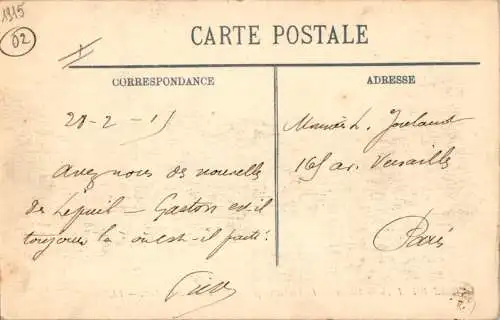 1915
02
CARTE POSTALE
CORRESPONDANCE
ADRESSE
20-2-15
Avez vous de nouvelle
de Lepuil – Gaston est-il
toujours là où est-il parti?
165 av. Versailles
Paris